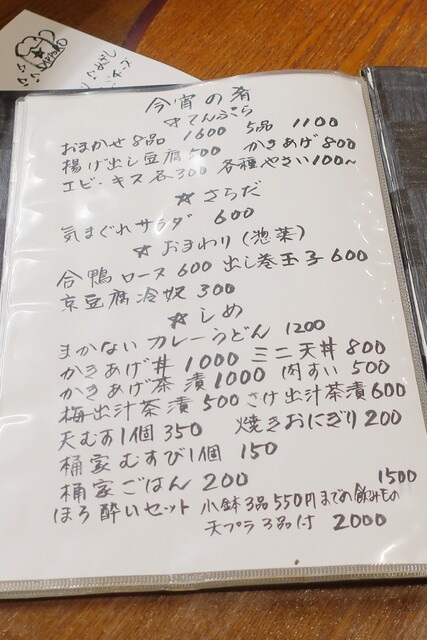 SAPPORO
今宵の肴
☆てんぷら
おまかせ8品 1600 5品 1100
揚げ出し豆腐500 かきあげ800
エビ・キス各300 各種やさい100~
☆さらだ
気まぐれサラダ 600
☆おまわり(惣菜)
合鴨ロース600 出し巻玉子600
京豆腐冷奴 300
☆しめ
まかないカレーうどん 1200
かきあげ丼1000 ミニ天丼800
かきあげ茶漬1000 肉すい500
梅出汁茶漬500 さけ出汁茶漬600
天むす1個350 焼きおにぎり200
桶家むすび1個 150
桶家ごはん 200
1500
ほろ酔いセット 小鉢3品550円までの飲みもの
天プラ3品付 2000